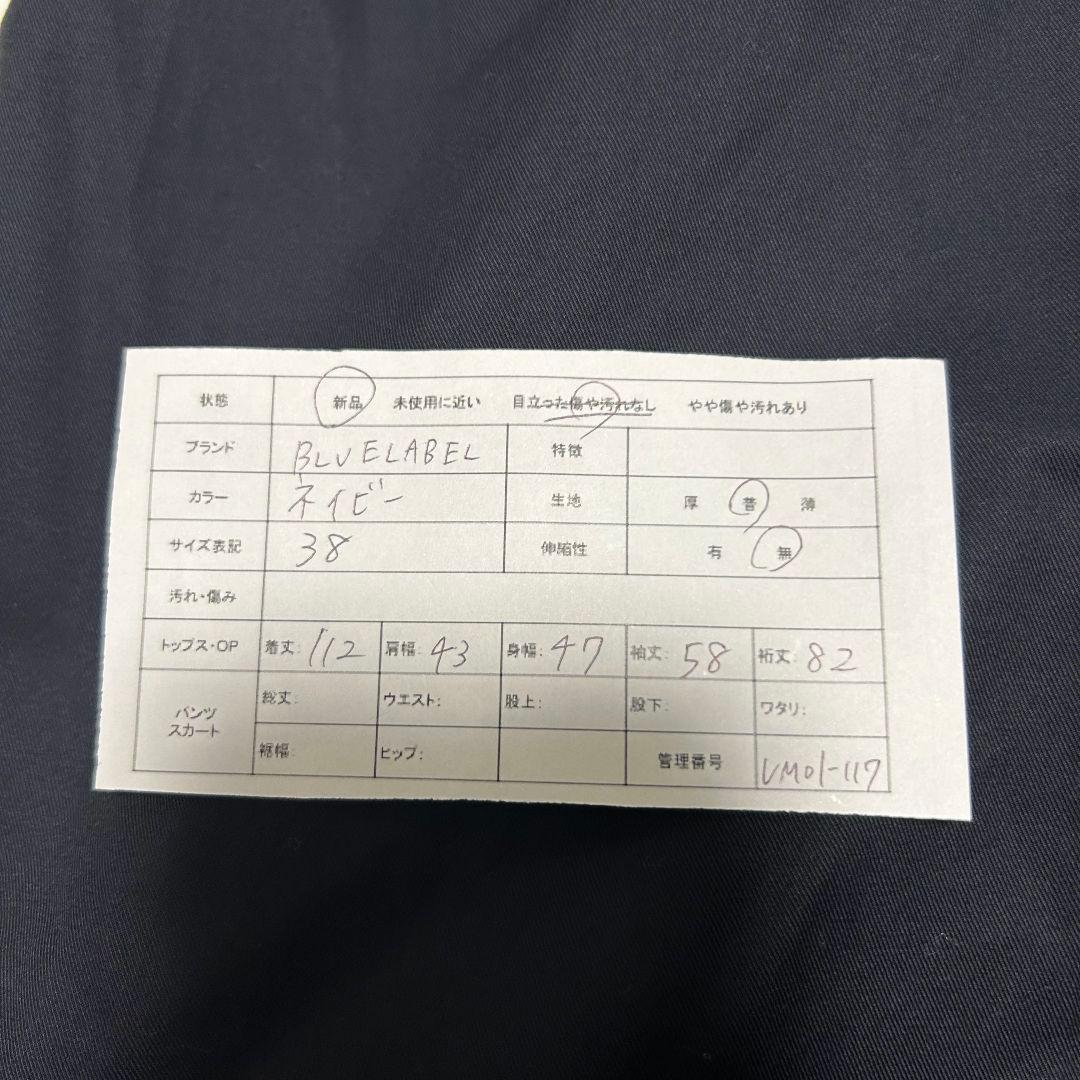 状態 新品 未使用に近い 目立った傷や汚れなし やや傷や汚れあり
ブランド BLUELABEL 特徴
カラー ネイビー 生地 厚 普 薄
サイズ表記 38 伸縮性 有 無
汚れ・傷み
トップス・OP 着丈: 112 肩幅: 43 身幅: 47 袖丈: 58 裄丈: 82
パンツ スカート 総丈: ウエスト: 股上: 股下: ワタリ:
裾幅: ヒップ: 管理番号 VM01-117